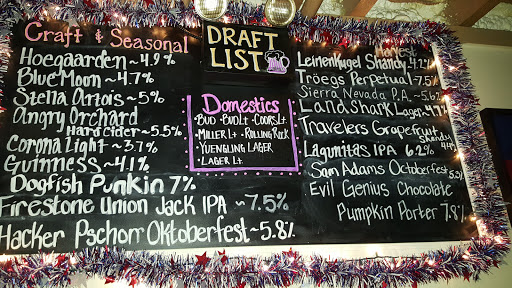 Craft & Seasonal
Hoegaarden ~ 4.9%
Blue Moon ~ 4.7%
Stella Artois ~ 5%
Angry Orchard
Hard Cider ~ 5.5%
Corona Light ~ 3.7%
Guinness ~ 4.1%
Dogfish Punkin 7%
Firestone Union Jack IPA ~7.5%
Hacker Pschorr Oktoberfest ~ 5.8%
DRAFT
LIST
Domestics
·Bud ·Bud Lt ·Coors Lt
·Miller Lt ·Rolling Rock
·Yuengling Lager
·Lager Lt.
Harvest
Leinenkugel Shandy 4.2%
Tröegs Perpetual ~7.5%
Sierra Nevada P.A. ~5.6%
Landshark Lager
Travelers Grapefruit
Shandy
Lagunitas IPA 6.2%
Sam Adams Octoberfest
Evil Genius Chocolate
Pumpkin Porter 7.8%